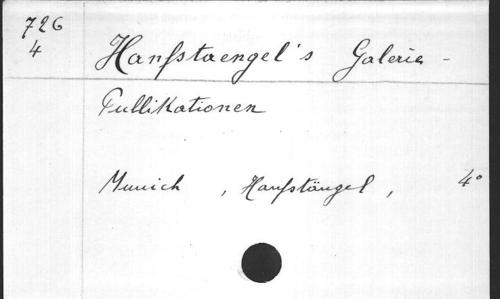 726
4
Hanfstaengel's Galerie -
Publikationen
Munich , Hanfstängel , 4°